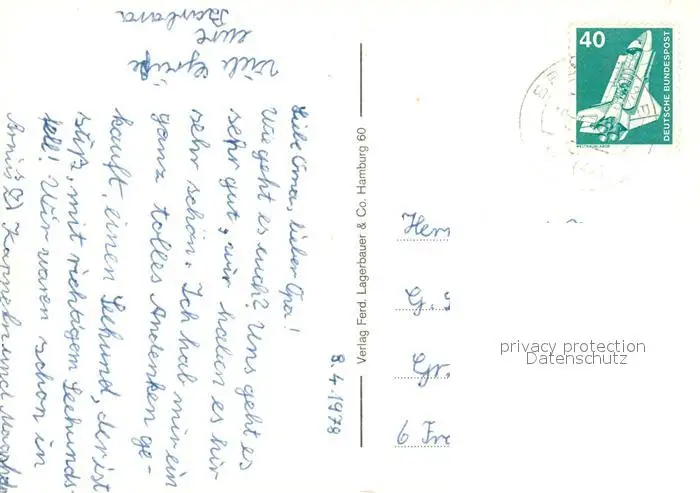 8.4.1978
Liebe Oma, lieber Opa!
Wie geht es euch? Uns geht es
sehr gut, wir haben es hir
sehr schön. Ich hab mir ein
ganz tolles Andenken ge-
kauft, einen Seehund, der ist
süß, mit richtigem Seehunds-
fell! Wir waren schon in
Viele Grüße
eure
Barbara
Verlag Ferd. Lagerbauer & Co. Hamburg 60
40
DEUTSCHE BUNDESPOST
WELTRAUMLABOR
Herr
G. S
Gr.
6 Fre
privacy protection
Datenschutz